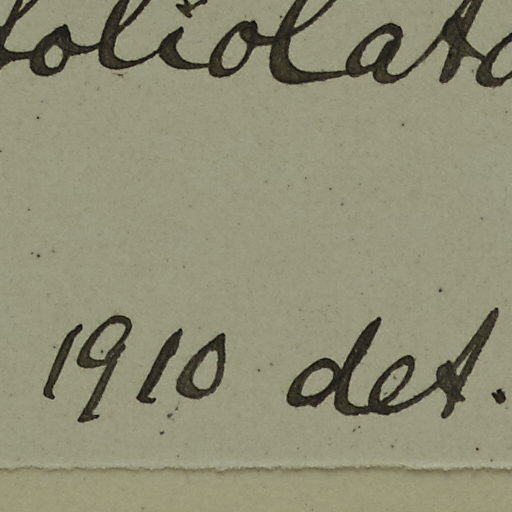 foliolata
1910 det.